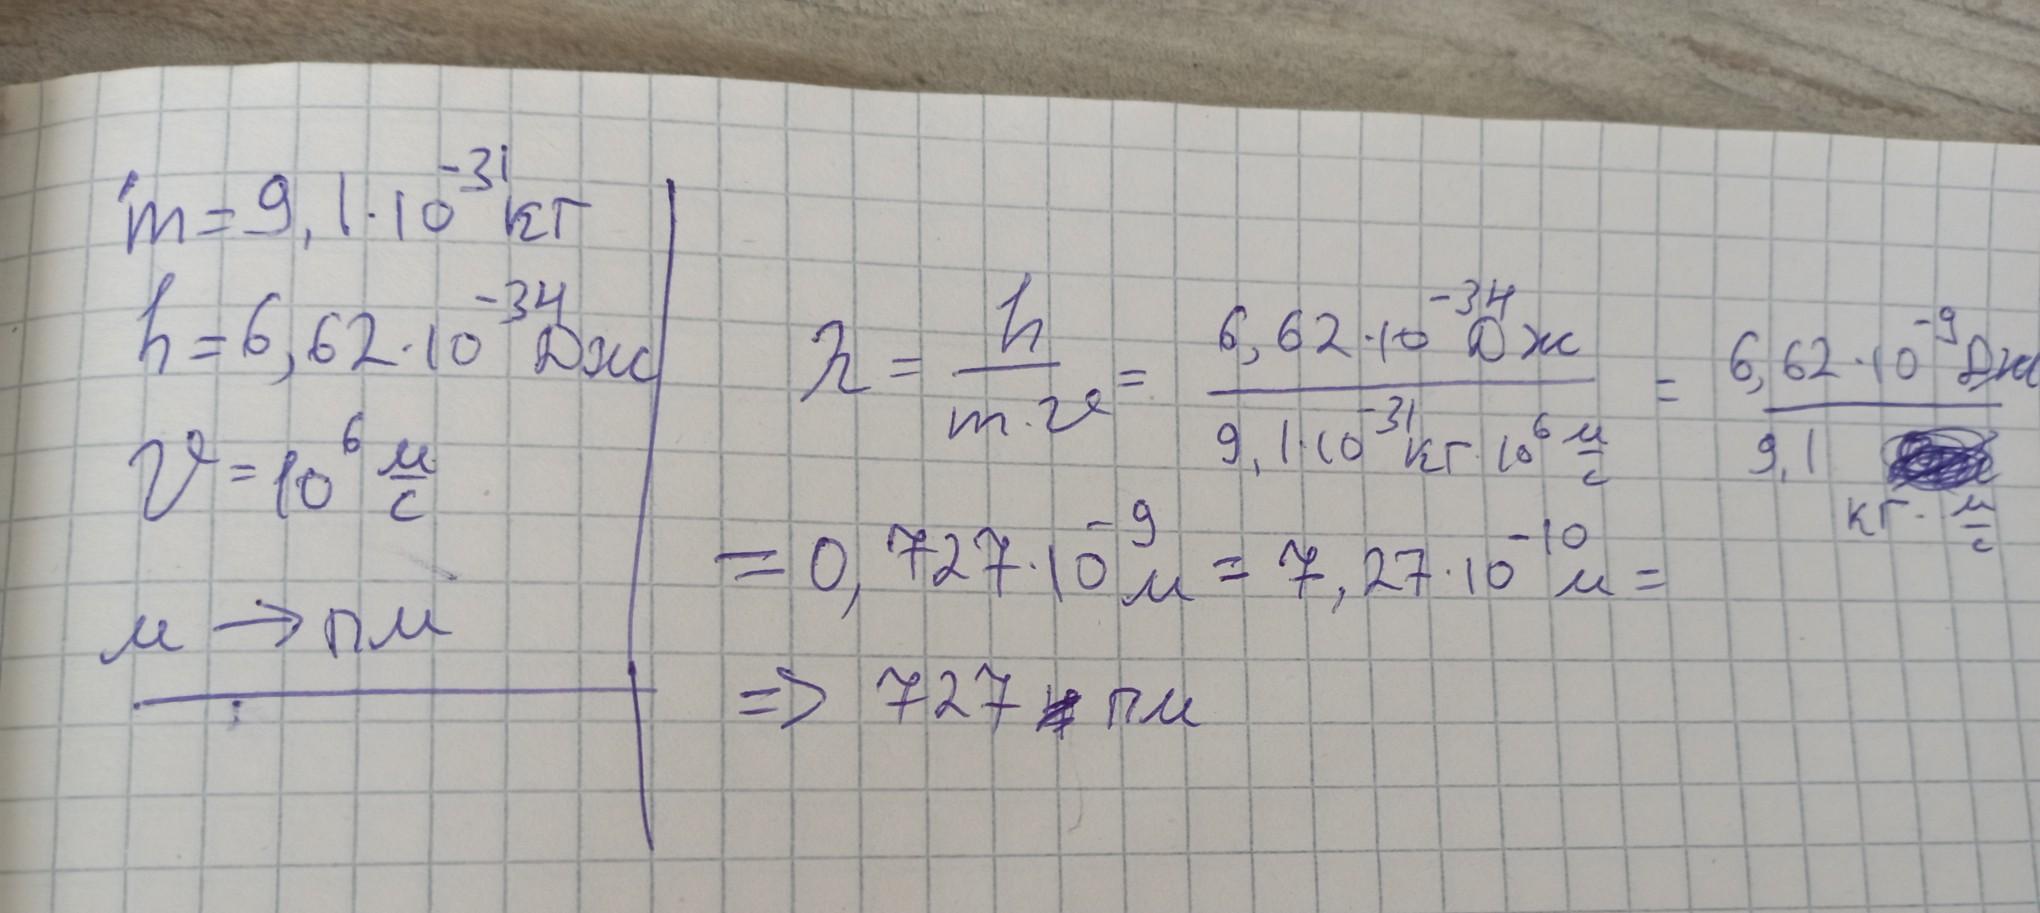 m = 9,1·10⁻³¹ кг
h = 6,62·10⁻³⁴ Дж
v = 10⁶ м/с
м → пм
λ = h/(m·v) = (6,62·10⁻³⁴ Дж)/(9,1·10⁻³¹ кг·10⁶ м/с) = (6,62·10⁻⁹ Дж)/(9,1 кг·м/с)
= 0,727·10⁻⁹ м = 7,27·10⁻¹⁰ м =
=> 727 пм